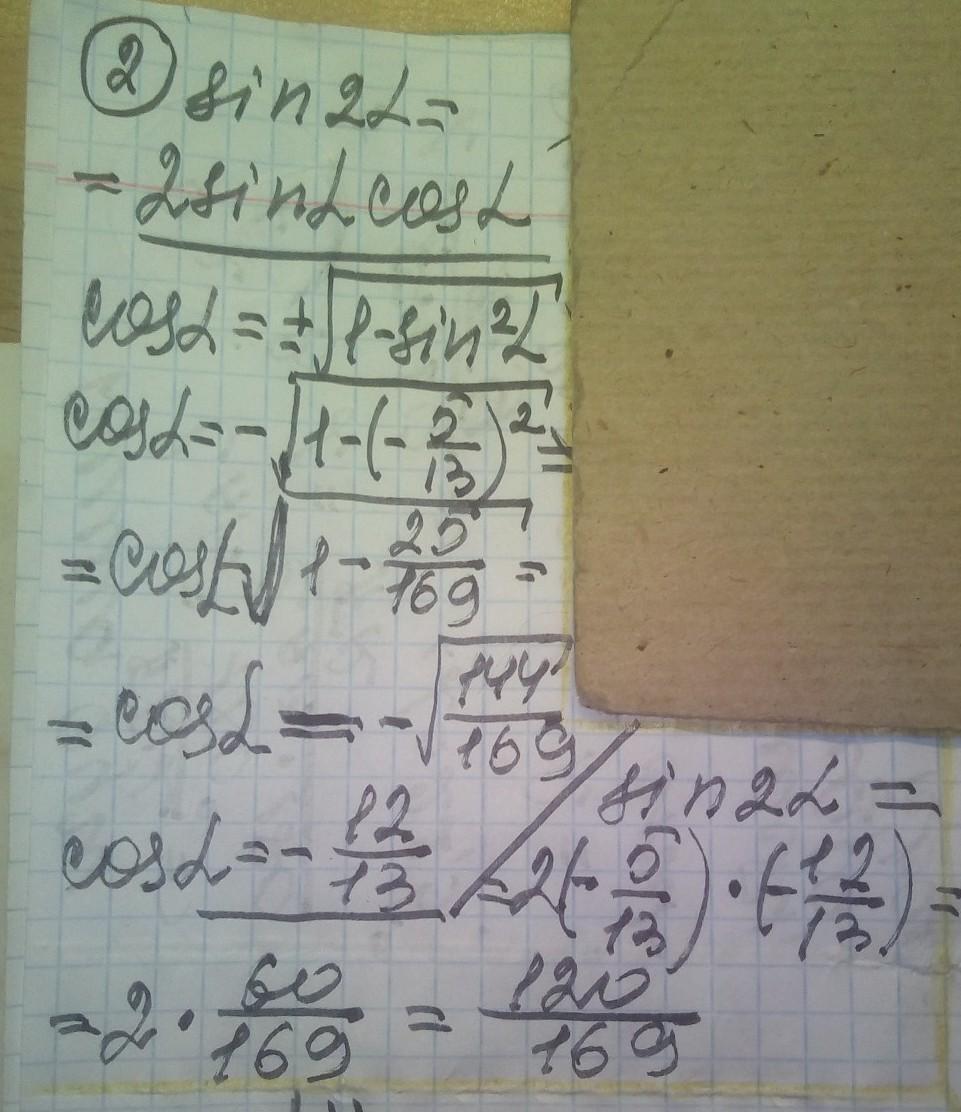 ② sin2α=
= 2sinα cosα
cosα = ±√(1-sin²α)
cosα = -√(1-(-5/13)²) =
= cosα-√(1-25/169) =
= cosα = -√(144/169)
cosα = -12/13
sin2α =
=2(-5/13)·(-12/13)=
=2·60/169 = 120/169